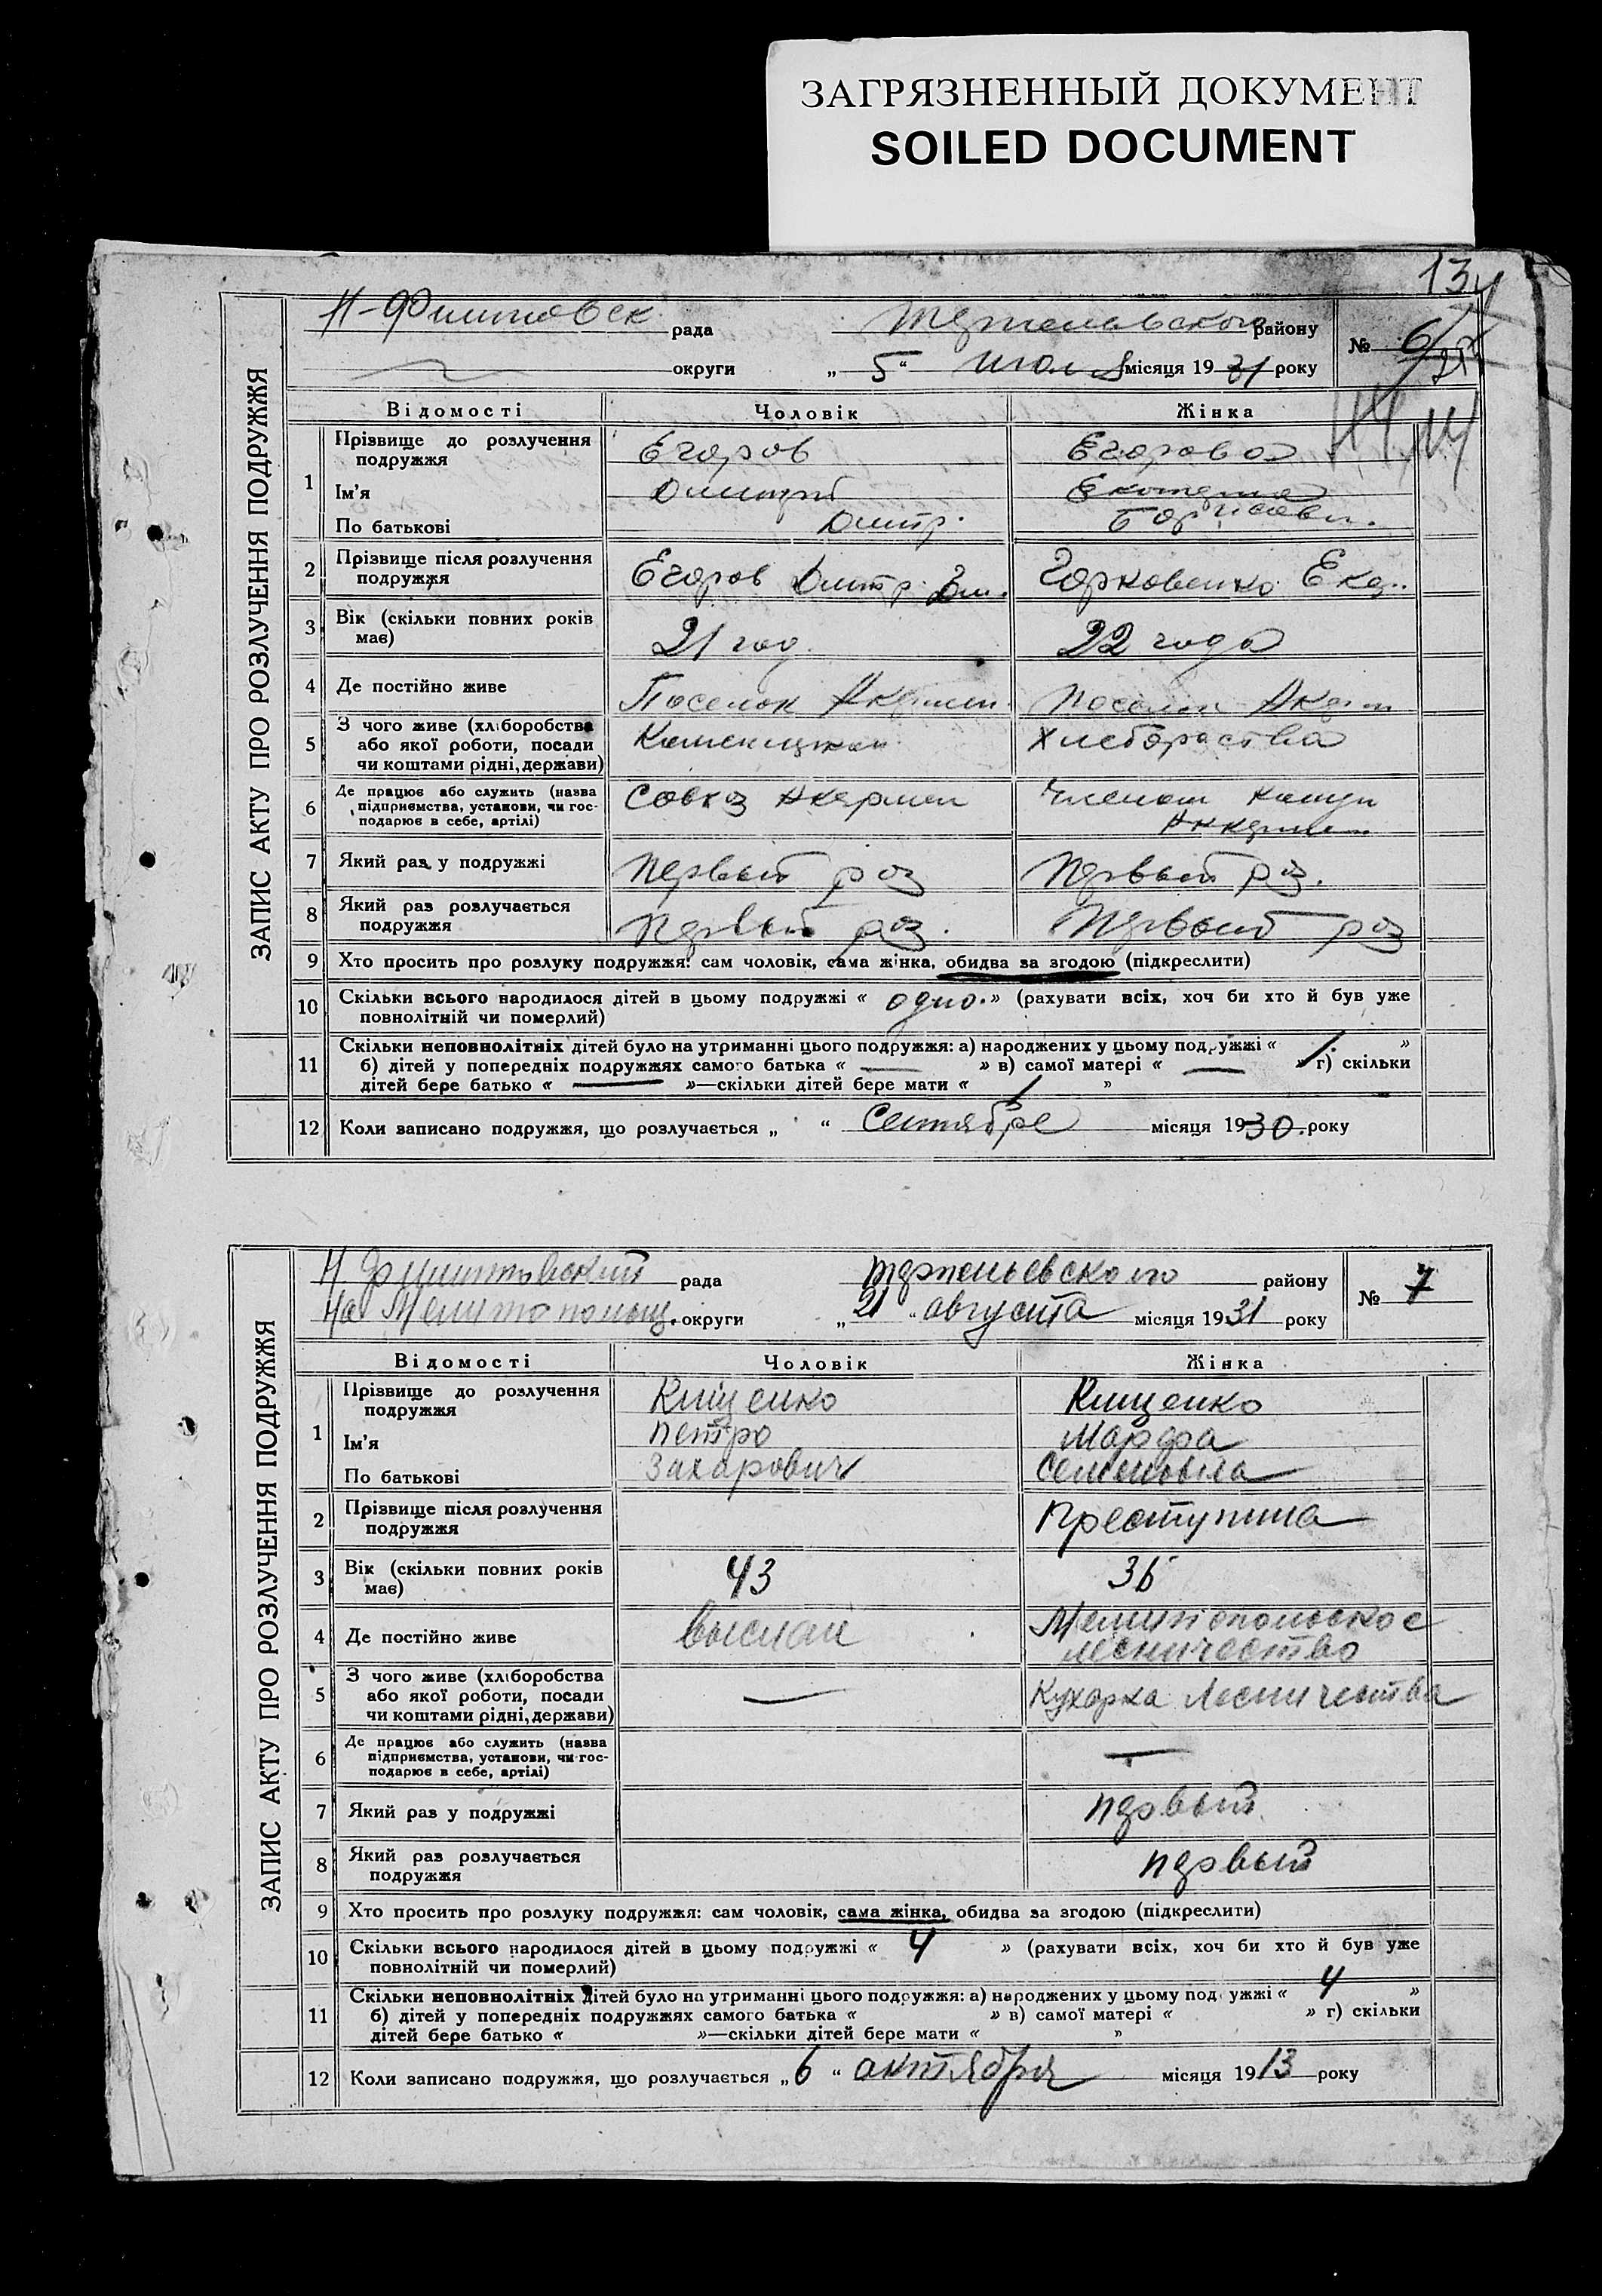 ЗАГРЯЗНЕННЫЙ ДОКУМЕНТ
SOILED DOCUMENT
13
ЗАПИС АКТУ ПРО РОЗЛУЧЕННЯ ПОДРУЖЖЯ
рада району
№ 6
округи „ 5 “ июля місяця 1931 року
Відомості Чоловік Жінка
1 Прізвище до розлучення подружжя Егоров Егорова
Ім'я Дмитрий
По батькові Дмитр.
2 Прізвище після розлучення подружжя Егоров Дмитр. Дм. Горковенко Ека..
3 Вік (скільки повних років має) 21 год. 22 года
4 Де постійно живе Поселок Акермен. поселок
5 З чого живе (хліборобства або якої роботи, посади чи коштами рідні, держави) Хлеборобства
6 Де працює або служить (назва підприємства, установи, чи господарює в себе, артілі) Совхоз Акермен Членом
7 Який раз у подружжі первый раз первый раз.
8 Який раз розлучається подружжя первый раз. Первый раз
9 Хто просить про розлуку подружжя: сам чоловік, сама жінка, обидва за згодою (підкреслити)
10 Скільки всього народилося дітей в цьому подружжі « одно. » (рахувати всіх, хоч би хто й був уже
повнолітній чи померлий)
11 Скільки неповнолітніх дітей було на утриманні цього подружжя: а) народжених у цьому подружжі « »
б) дітей у попередніх подружжях самого батька « — » в) самої матері « — » г) скільки
дітей бере батько « — »—скільки дітей бере мати « / »
12 Коли записано подружжя, що розлучається „ “ Сентябре місяця 1930. року
ЗАПИС АКТУ ПРО РОЗЛУЧЕННЯ ПОДРУЖЖЯ
рада району
№ 7
округи „ 21 “ августа місяця 1931 року
Відомості Чоловік Жінка
1 Прізвище до розлучення подружжя Кищенко Кищенко
Ім'я Петро Марфа
По батькові Захарович Семеновна
2 Прізвище після розлучення подружжя Преступина
3 Вік (скільки повних років має) 43 36
4 Де постійно живе выслан Мелитопольское
лесничество
5 З чого живе (хліборобства або якої роботи, посади чи коштами рідні, держави) — Кухарка Лесничества
6 Де працює або служить (назва підприємства, установи, чи господарює в себе, артілі) —
7 Який раз у подружжі первый
8 Який раз розлучається подружжя первый
9 Хто просить про розлуку подружжя: сам чоловік, сама жінка, обидва за згодою (підкреслити)
10 Скільки всього народилося дітей в цьому подружжі « 4 » (рахувати всіх, хоч би хто й був уже
повнолітній чи померлий)
11 Скільки неповнолітніх дітей було на утриманні цього подружжя: а) народжених у цьому подружжі « 4 »
б) дітей у попередніх подружжях самого батька « » в) самої матері « » г) скільки
дітей бере батько « »—скільки дітей бере мати « »
12 Коли записано подружжя, що розлучається „ 6 “ октября місяця 1913 року